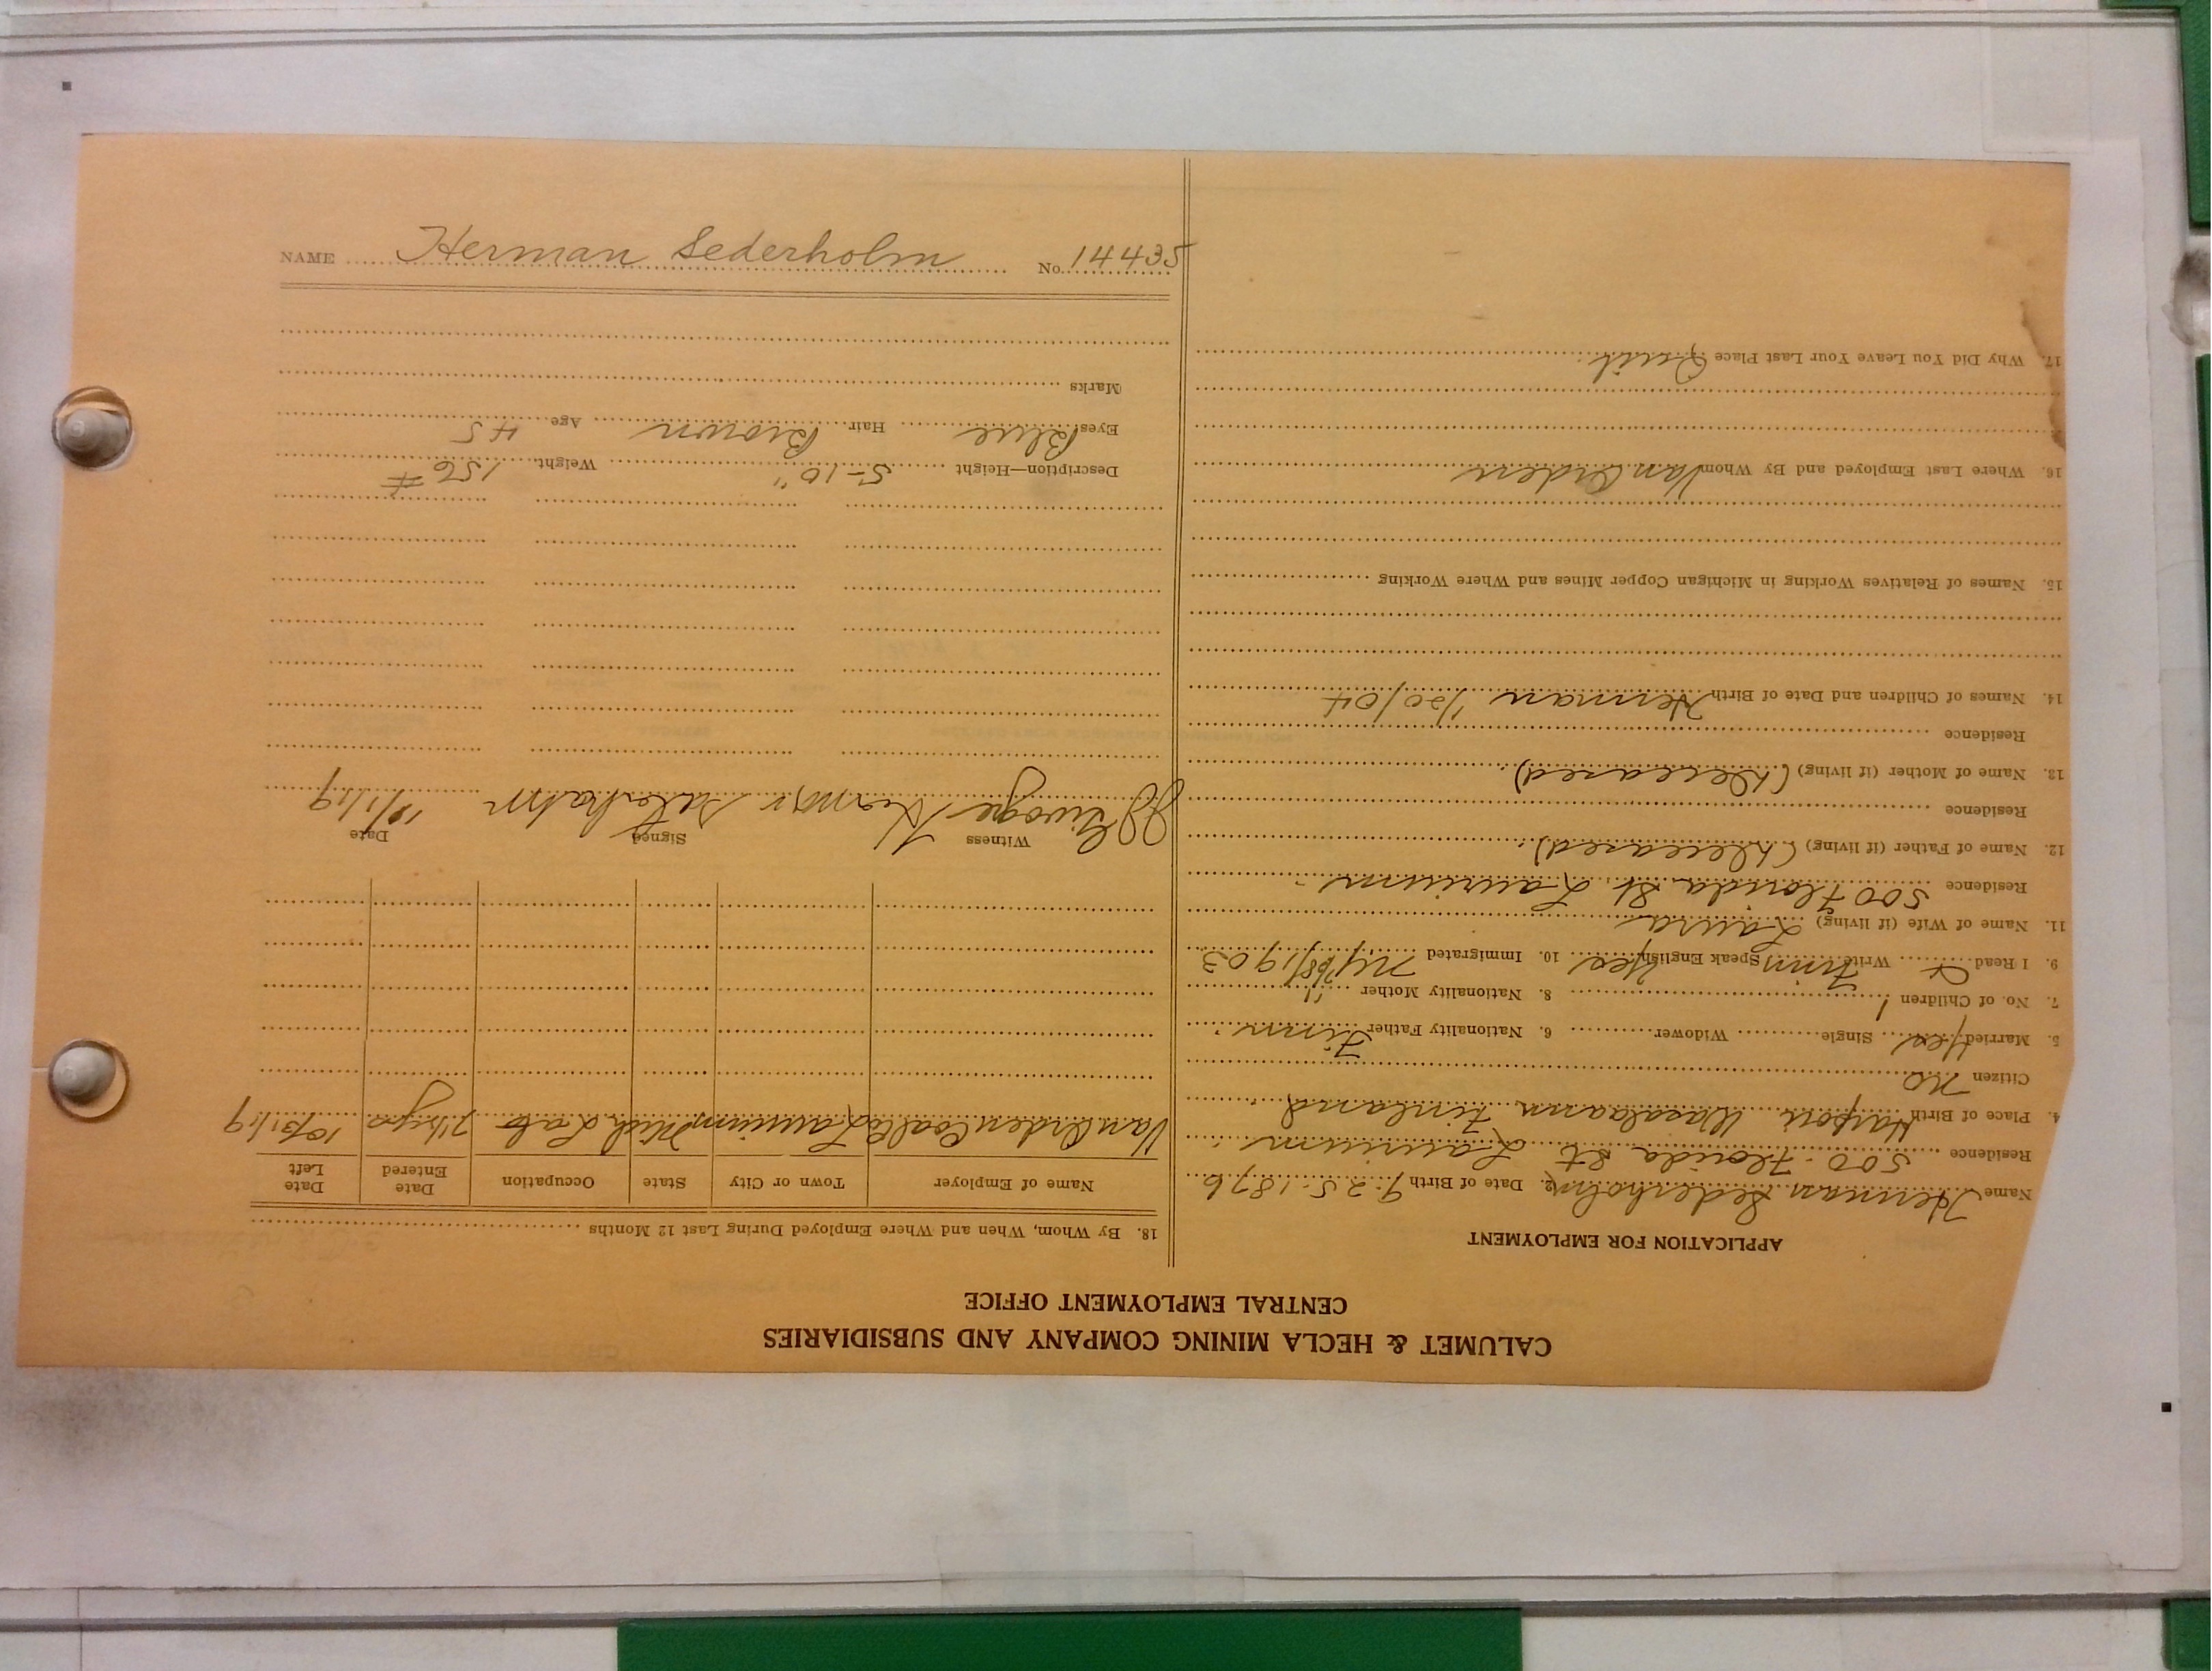 CALUMET & HECLA MINING COMPANY AND SUBSIDIARIES
CENTRAL EMPLOYMENT OFFICE
APPLICATION FOR EMPLOYMENT
Name Herman Sederholm 2. Date of Birth 9-25-1876
Residence 500 Florida St Laurium
4. Place of Birth Finland
Citizen No
5. Married Yes Single Widower 6. Nationality Father Finn
7. No. of Children 1 8. Nationality Mother "
9. I Read & Write Finn Speak English Yes 10. Immigrated NY 1903
11. Name of Wife (if living) Laura
Residence 500 Florida St. Laurium
12. Name of Father (if living) (Deceased)
Residence
13. Name of Mother (if living) (Deceased)
Residence
14. Names of Children and Date of Birth Herman 1/20/04
15. Names of Relatives Working in Michigan Copper Mines and Where Working
16. Where Last Employed and By Whom Van Orden
17. Why Did You Leave Your Last Place Quit
18. By Whom, When and Where Employed During Last 12 Months
Name of Employer Town or City State Occupation Date Entered Date Left
Van Orden Coal Co Laurium Mich Lab 10/31/19
Witness Signed Date
Description—Height 5-10" Weight 156 #
Eyes Blue Hair Brown Age 45
Marks
NAME Herman Sederholm No. 14435